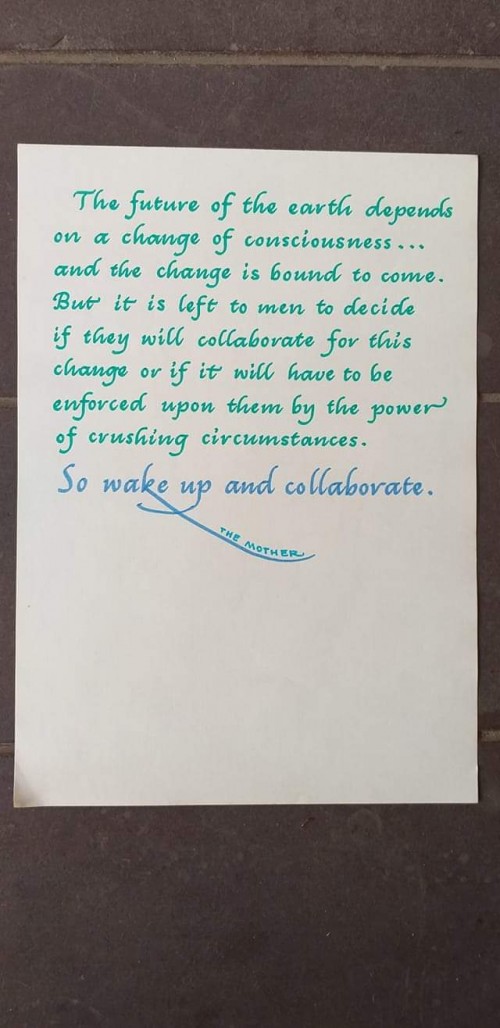 The future of the earth depends
on a change of consciousness...
and the change is bound to come.
But it is left to men to decide
if they will collaborate for this
change or if it will have to be
enforced upon them by the power
of crushing circumstances.
So wake up and collaborate.
THE MOTHER